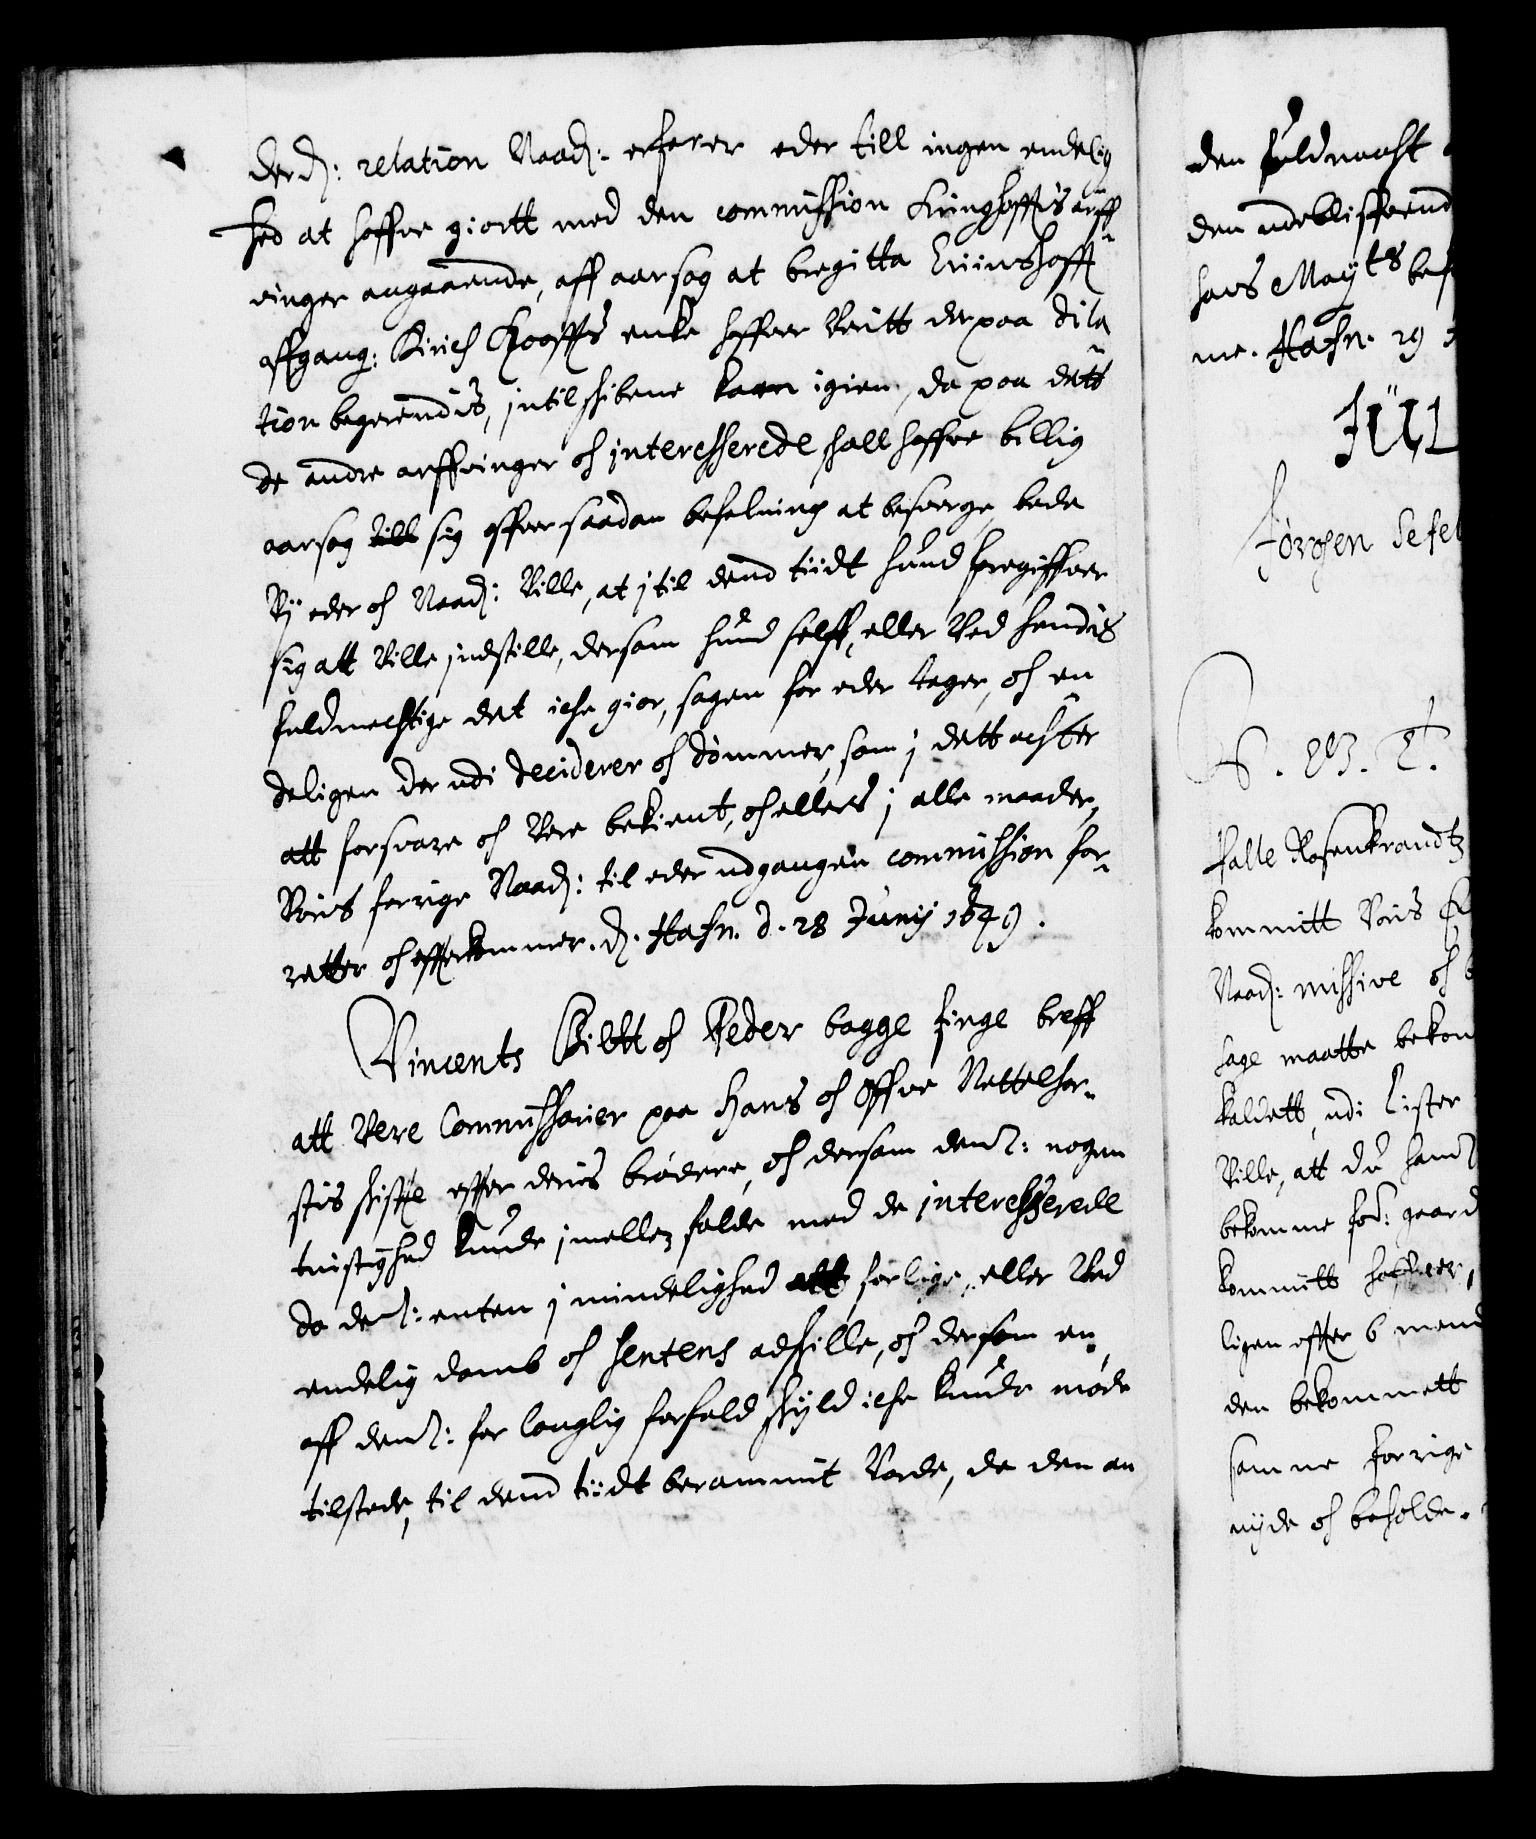 derḍ: relation Naadḍ: erfarer eder till ingen endelig
hed at haffue giortt med den commission Kringhoffs arff
uinger angaaende, aff aarsag at bregitta Eriinshoff
affgang: Kirich Kooffs enke haffuer Veritt der paa dila
tion begerendis, jntil skibene kom igien, da paa dett
de andre arffuinger oc interesserede skall haffue billig
aarsag sig offuer saadan befalning at besuerge, bede
Vij eder oc Naadḍ: Ville, at jtil dend tiidt hund foregiffuer
sig att Ville indstille, dersom hund selff, eller Ved hendis
fuldmechtige det iche giør, sagen for eder tager, oc en
deligen der udi deciderer oc dømmer, som j dett achter
att forsuare oc Vere bekient, oc ellers j alle maader,
Voris forrige Naadḍ: til eder udgangen commission for
retter oc effterkommer. ḍ. Hafn. d. 28 Junij 1649.
Vincents Bildtt oc Peder bagge finge breff
att Vere Commissarier paa Hans oc Offue Nettelhor
stis skiffte effter deris brødere, oc dersom dennḍ: nogen
tuistighed kunde jmellem falde med de interesserede
da dennḍ: enten j mindelighed att forlige, eller Ved
endelig domb oc sentens adskille, oc dersom en
aff dennḍ: for lauglig forfald skyld iche kunde møde
tilstede, til dend tiidt berammit Vorde, da den an
den fuldmacht
den udebliffuend
hans Mayts bef
me. Hafn. 29
JUL
Jørgen Sefel
Falle Rosenkrandtz
kommitt Voris
Naadḍ: missive oc
sage maatte bekom
kaldett, udi Lister
Ville, att du hand
bekomme forḍ: gaard
kommitt haffuer,
ligen effter 6 mend
den bekommett
samme forrige
nyde oc beholde.